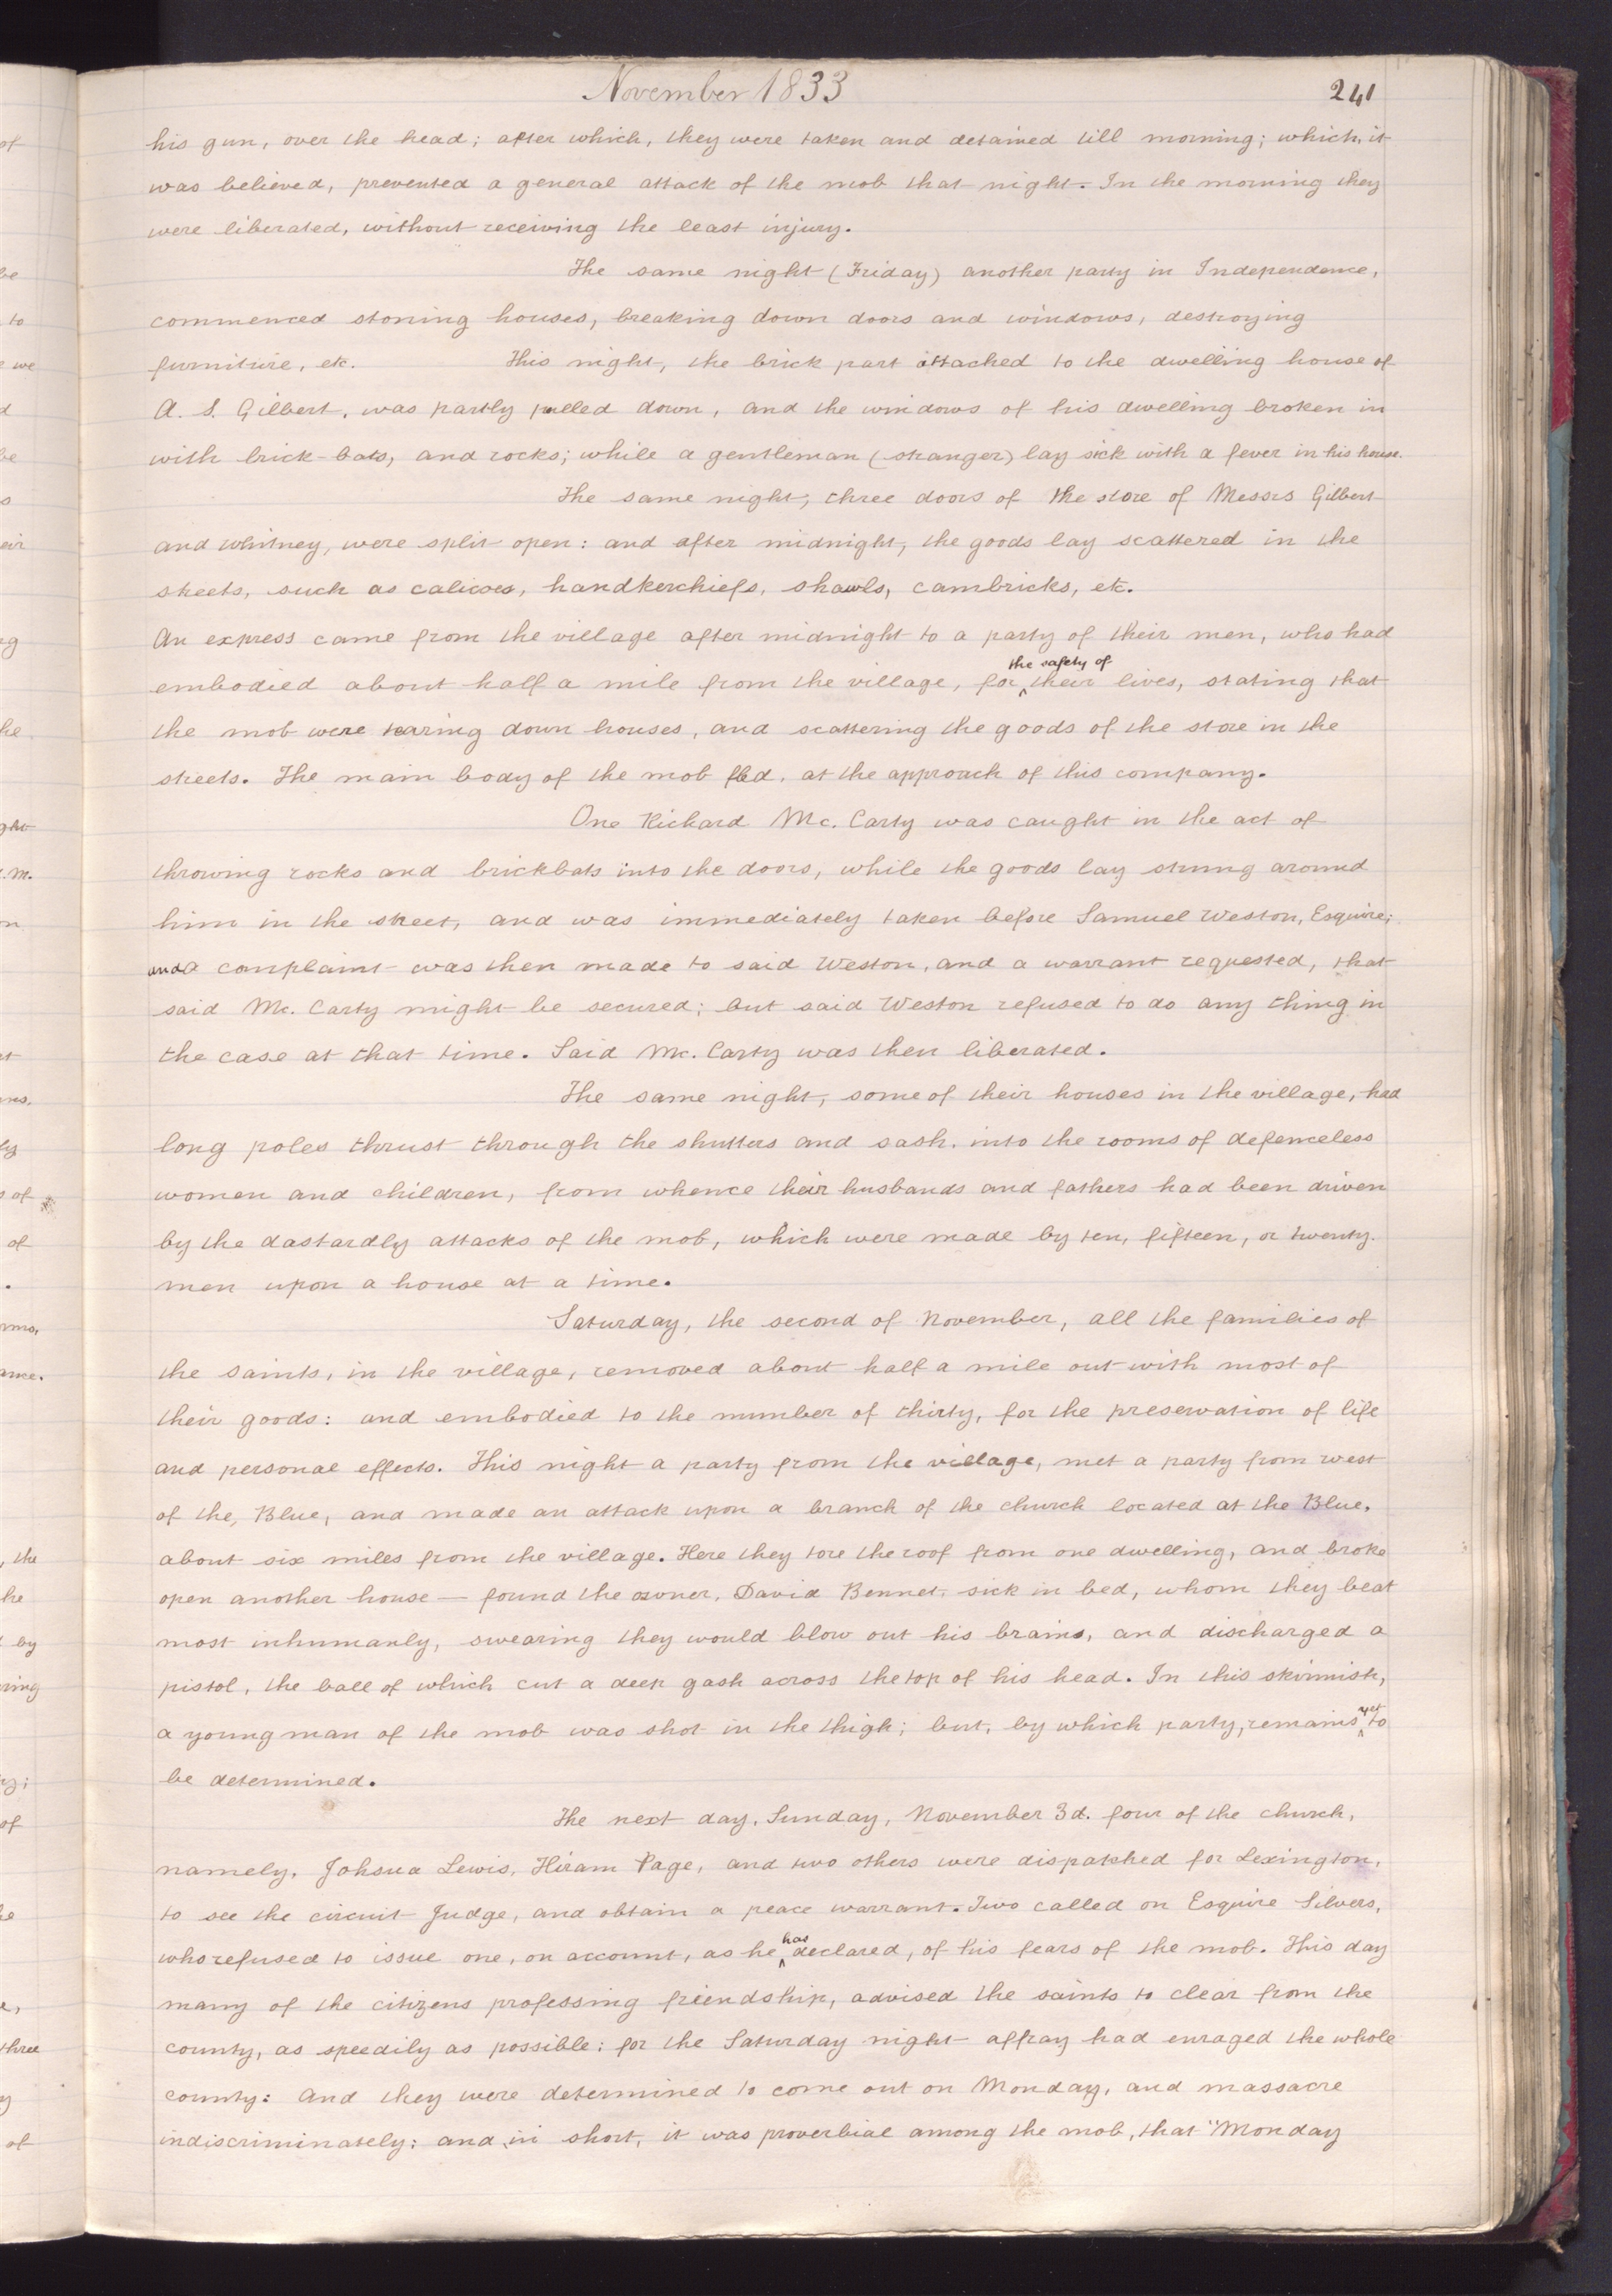 November 1833
241
his gun, over the head; after which, they were taken and detained till morning; which, it
was believed, prevented a general attack of the mob that night. In the morning they
were liberated, without receiving the least injury.
The same night (Friday) another party in Independence,
commenced stoning houses, breaking down doors and windows, destroying
furniture, etc. This night, the brick part attached to the dwelling house of
A. S. Gilbert, was partly pulled down, and the windows of his dwelling broken in
with brick-bats, and rocks; while a gentleman (stranger) lay sick with a fever in his house.
The same night, three doors of the store of Messrs Gilbert
and Whitney, were split open: and after midnight, the goods lay scattered in the
streets, such as calicoes, handkerchiefs, shawls, cambricks, etc.
An express came from the village after midnight to a party of their men, who had
embodied about half a mile from the village, for the safety of their lives, stating that
the mob were tearing down houses, and scattering the goods of the store in the
streets. The main body of the mob fled, at the approach of this company.
One Richard Mc. Carty was caught in the act of
throwing rocks and brickbats into the doors, while the goods lay strung around
him in the street, and was immediately taken before Samuel Weston, Esquire;
and a complaint was then made to said Weston, and a warrant requested, that
said Mc. Carty might be secured; but said Weston refused to do any thing in
the case at that time. Said Mc. Carty was then liberated.
The same night, some of their houses in the village, had
long poles thrust through the shutters and sash, into the rooms of defenceless
women and children, from whence their husbands and fathers had been driven
by the dastardly attacks of the mob, which were made by ten, fifteen, or twenty
men upon a house at a time.
Saturday, the second of November, all the families of
the saints, in the village, removed about half a mile out with most of
their goods: and embodied to the number of thirty, for the preservation of life
and personal effects. This night a party from the village, met a party from west
of the, Blue, and made an attack upon a branch of the church located at the Blue,
about six miles from the village. Here they tore the roof from one dwelling, and broke
open another house — found the owner, David Bennet, sick in bed, whom they beat
most inhumanly, swearing they would blow out his brains, and discharged a
pistol, the ball of which cut a deep gash across the top of his head. In this skirmish,
a young man of the mob was shot in the thigh; but, by which party, remains yet to
be determined.
The next day, Sunday, November 3d. four of the church,
namely, Johsua Lewis, Hiram Page, and two others were dispatched for Lexington,
to see the circuit Judge, and obtain a peace warrant. Two called on Esquire Silvers,
who refused to issue one, on account, as he has declared, of his fears of the mob. This day
many of the citizens professing friendship, advised the saints to clear from the
county, as speedily as possible; for the Saturday night affray had enraged the whole
county: and they were determined to come out on Monday, and massacre
indiscriminately; and, in short, it was proverbial among the mob, that "Monday